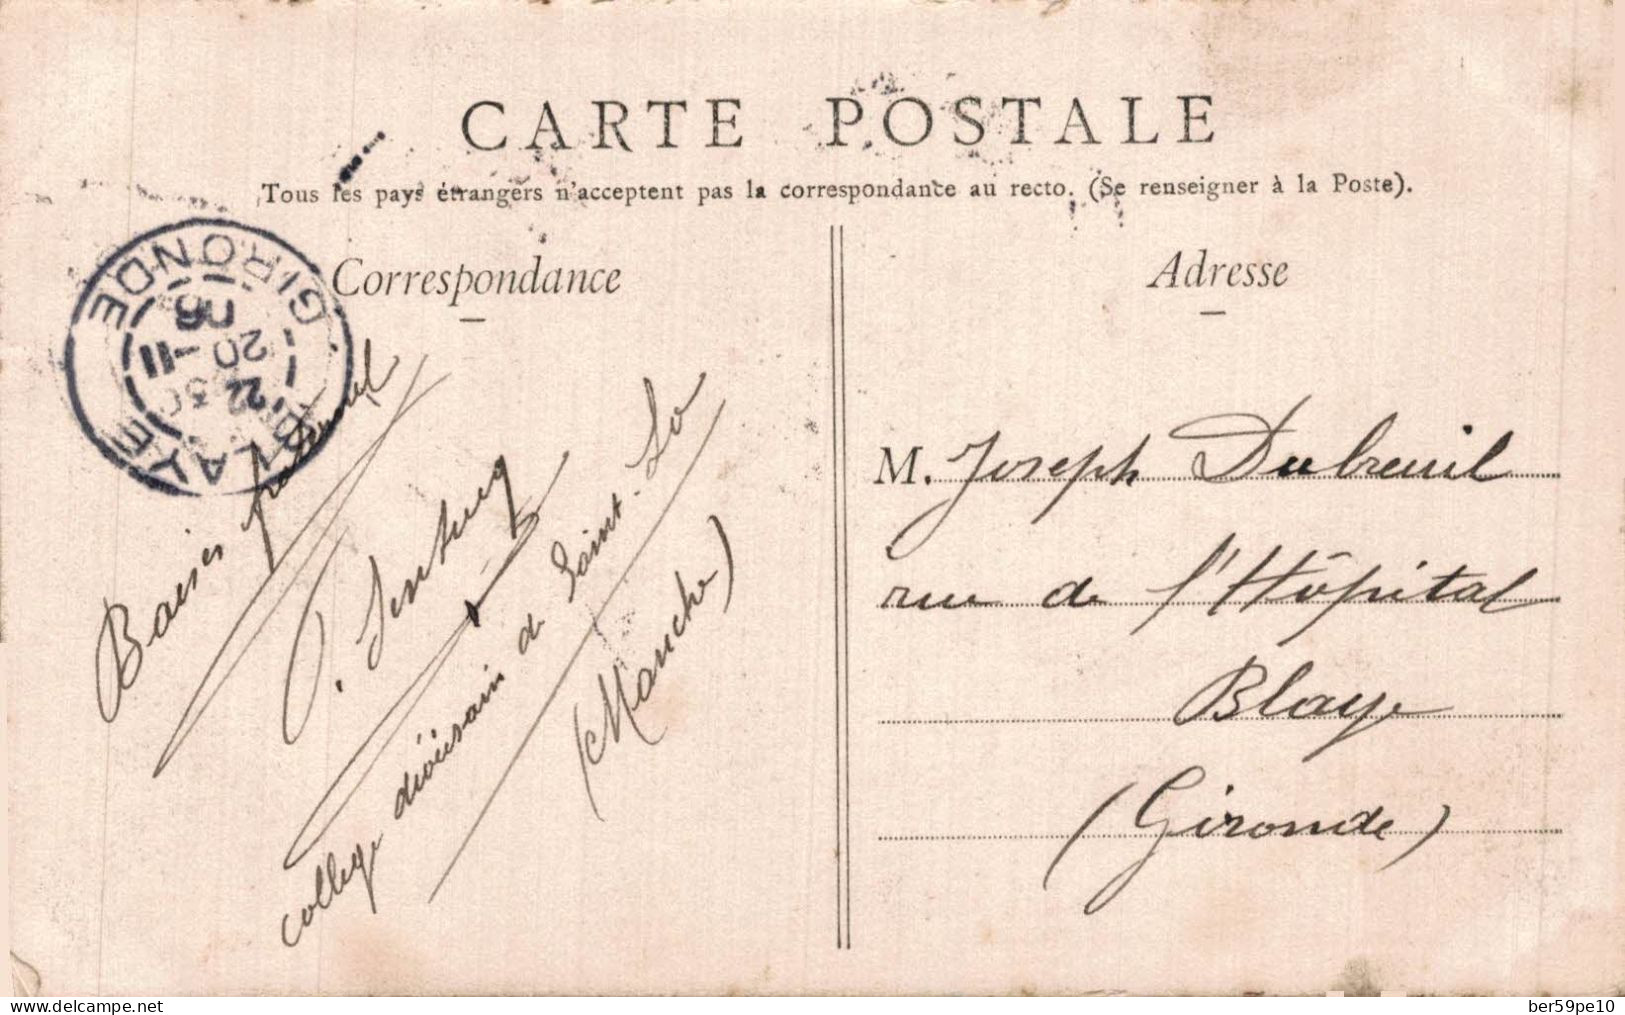 CARTE POSTALE
Tous les pays étrangers n'acceptent pas la correspondance au recto. (Se renseigner à la Poste).
Correspondance
Adresse
BLAYE
22 30
20 -11
06
GIRONDE
Baiser fraternel
collège diocésain de Saint-Lo
(Manche)
M. Joseph Dubreuil
rue de l'Hôpital
Blaye
(Gironde)
www.delcampe.net
ber59pe10